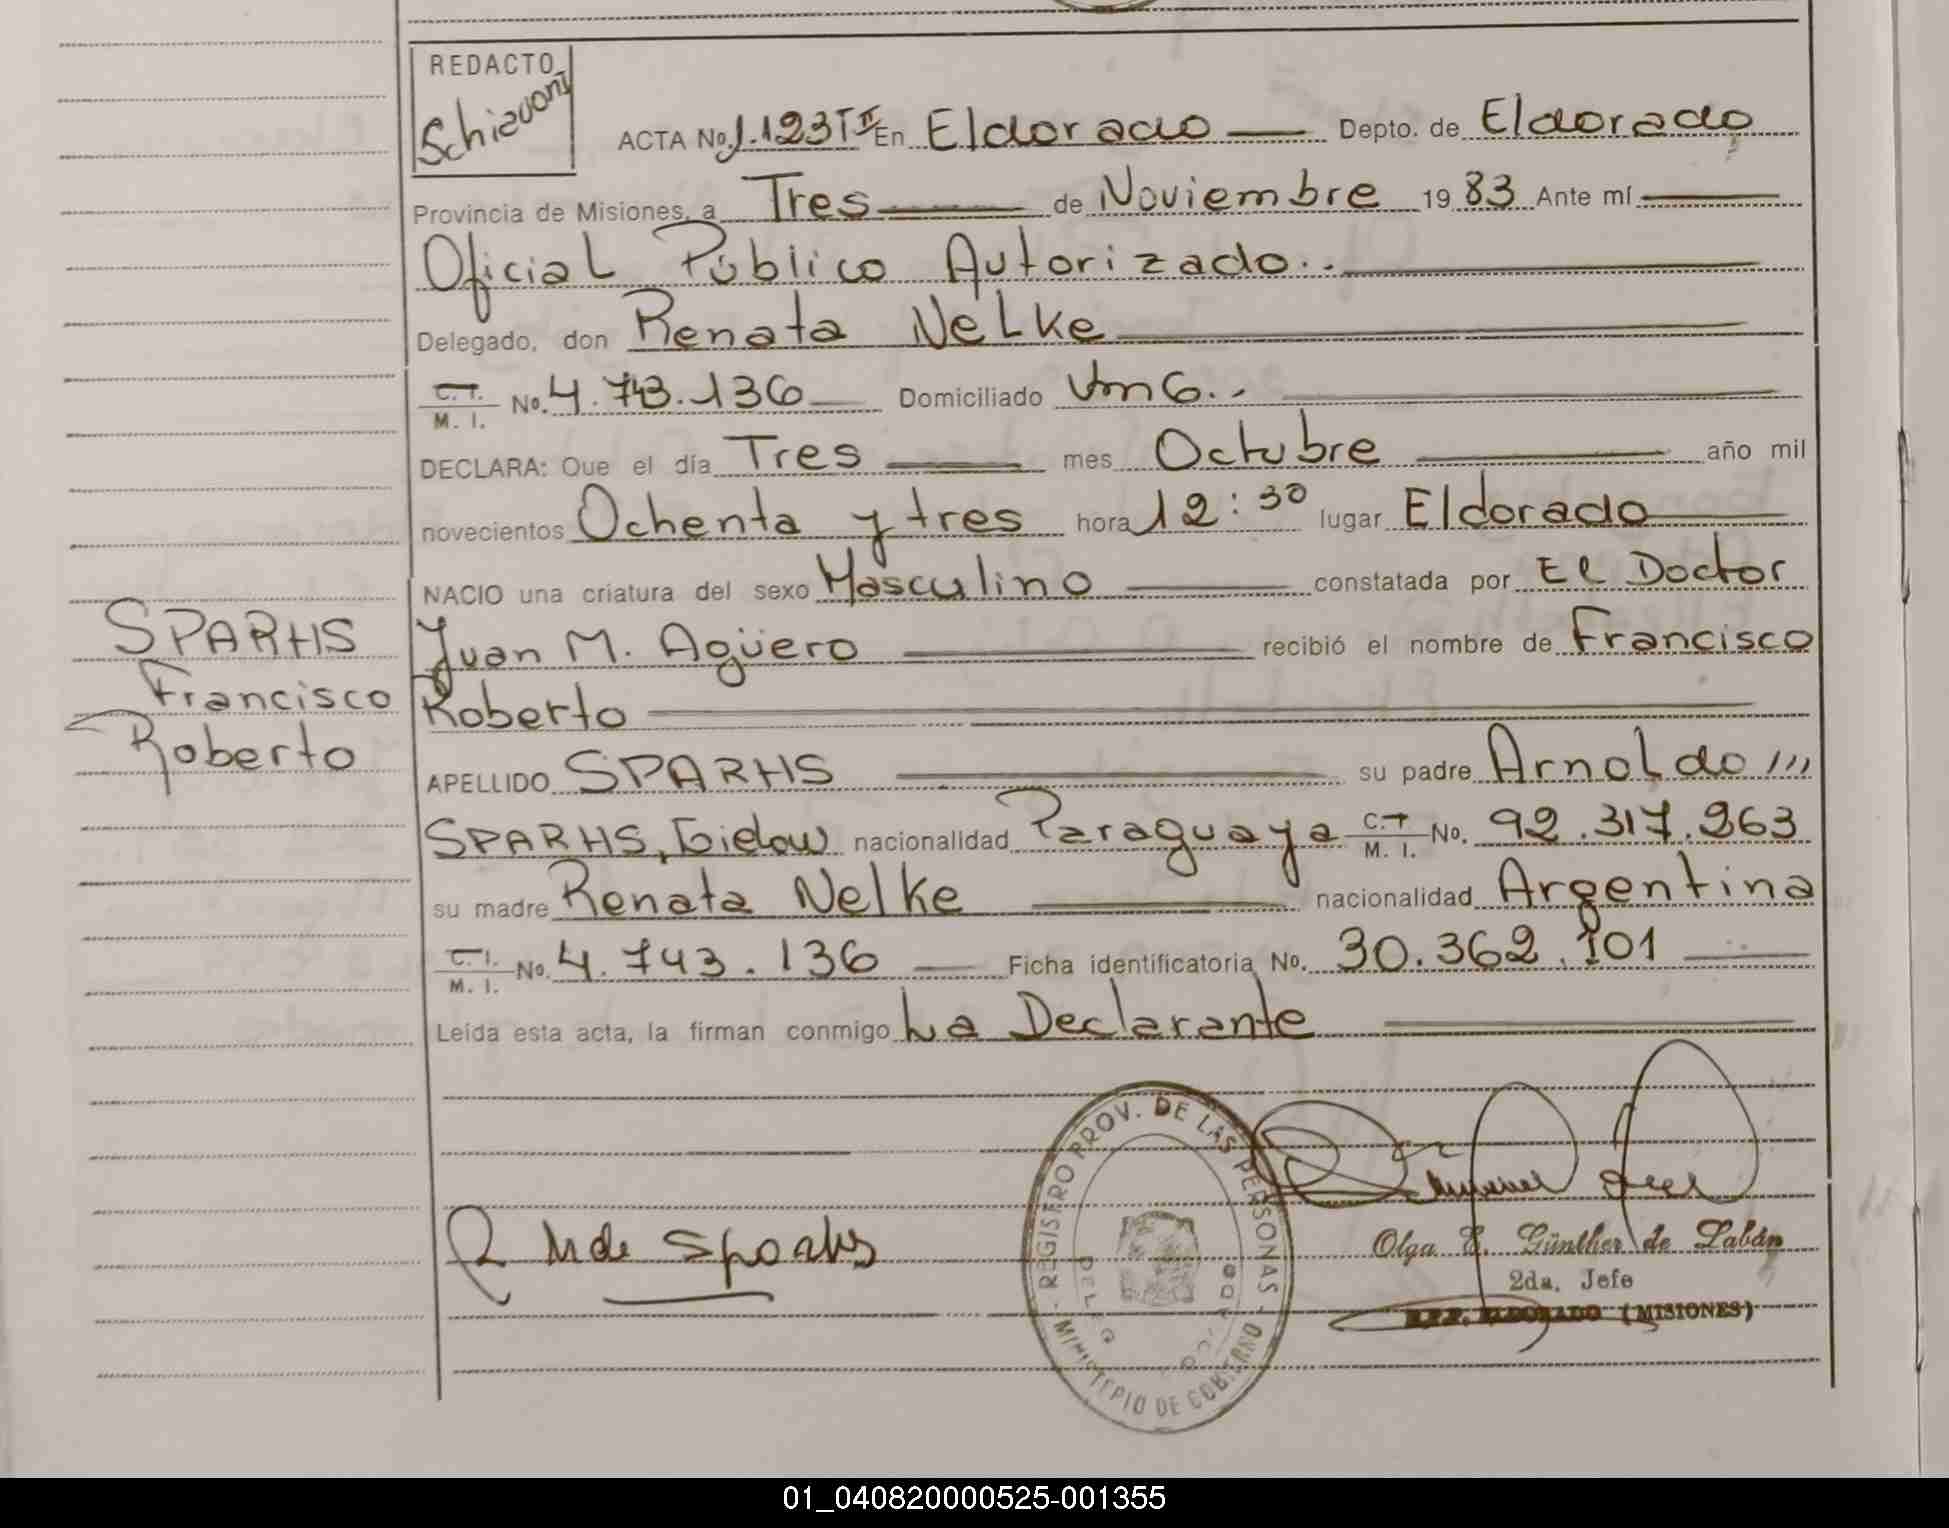 REDACTO
Schiavoni
ACTA No. 1.123 T II En Eldorado Depto. de Eldorado
Provincia de Misiones, a Tres de Noviembre 1983 Ante mí
Oficial Público Autorizado..
Delegado, don Renata Nelke
C. I. M. I. No. 4.743.136 Domiciliado
DECLARA: Que el día Tres mes Octubre año mil
novecientos Ochenta y tres hora 12:30 lugar Eldorado
NACIO una criatura del sexo Masculino constatada por El Doctor
Juan M. Agüero recibió el nombre de Francisco
Roberto
SPARHS
Francisco
Roberto
APELLIDO SPARHS su padre Arnoldo ///
SPARHS, Gielow nacionalidad Paraguaya C. I. M. I. No. 92.317.263
su madre Renata Nelke nacionalidad Argentina
C. I. M. I. No. 4.743.136 Ficha identificatoria No. 30.362.101
Leída esta acta, la firman conmigo La Declarante
REGISTRO PROV. DE LAS PERSONAS - MINISTERIO DE GOBIERNO
R N de Sparhs
Olga E. Günther de Labán
2da. Jefe
R.P.P. ELDORADO (MISIONES)
01_040820000525-001355